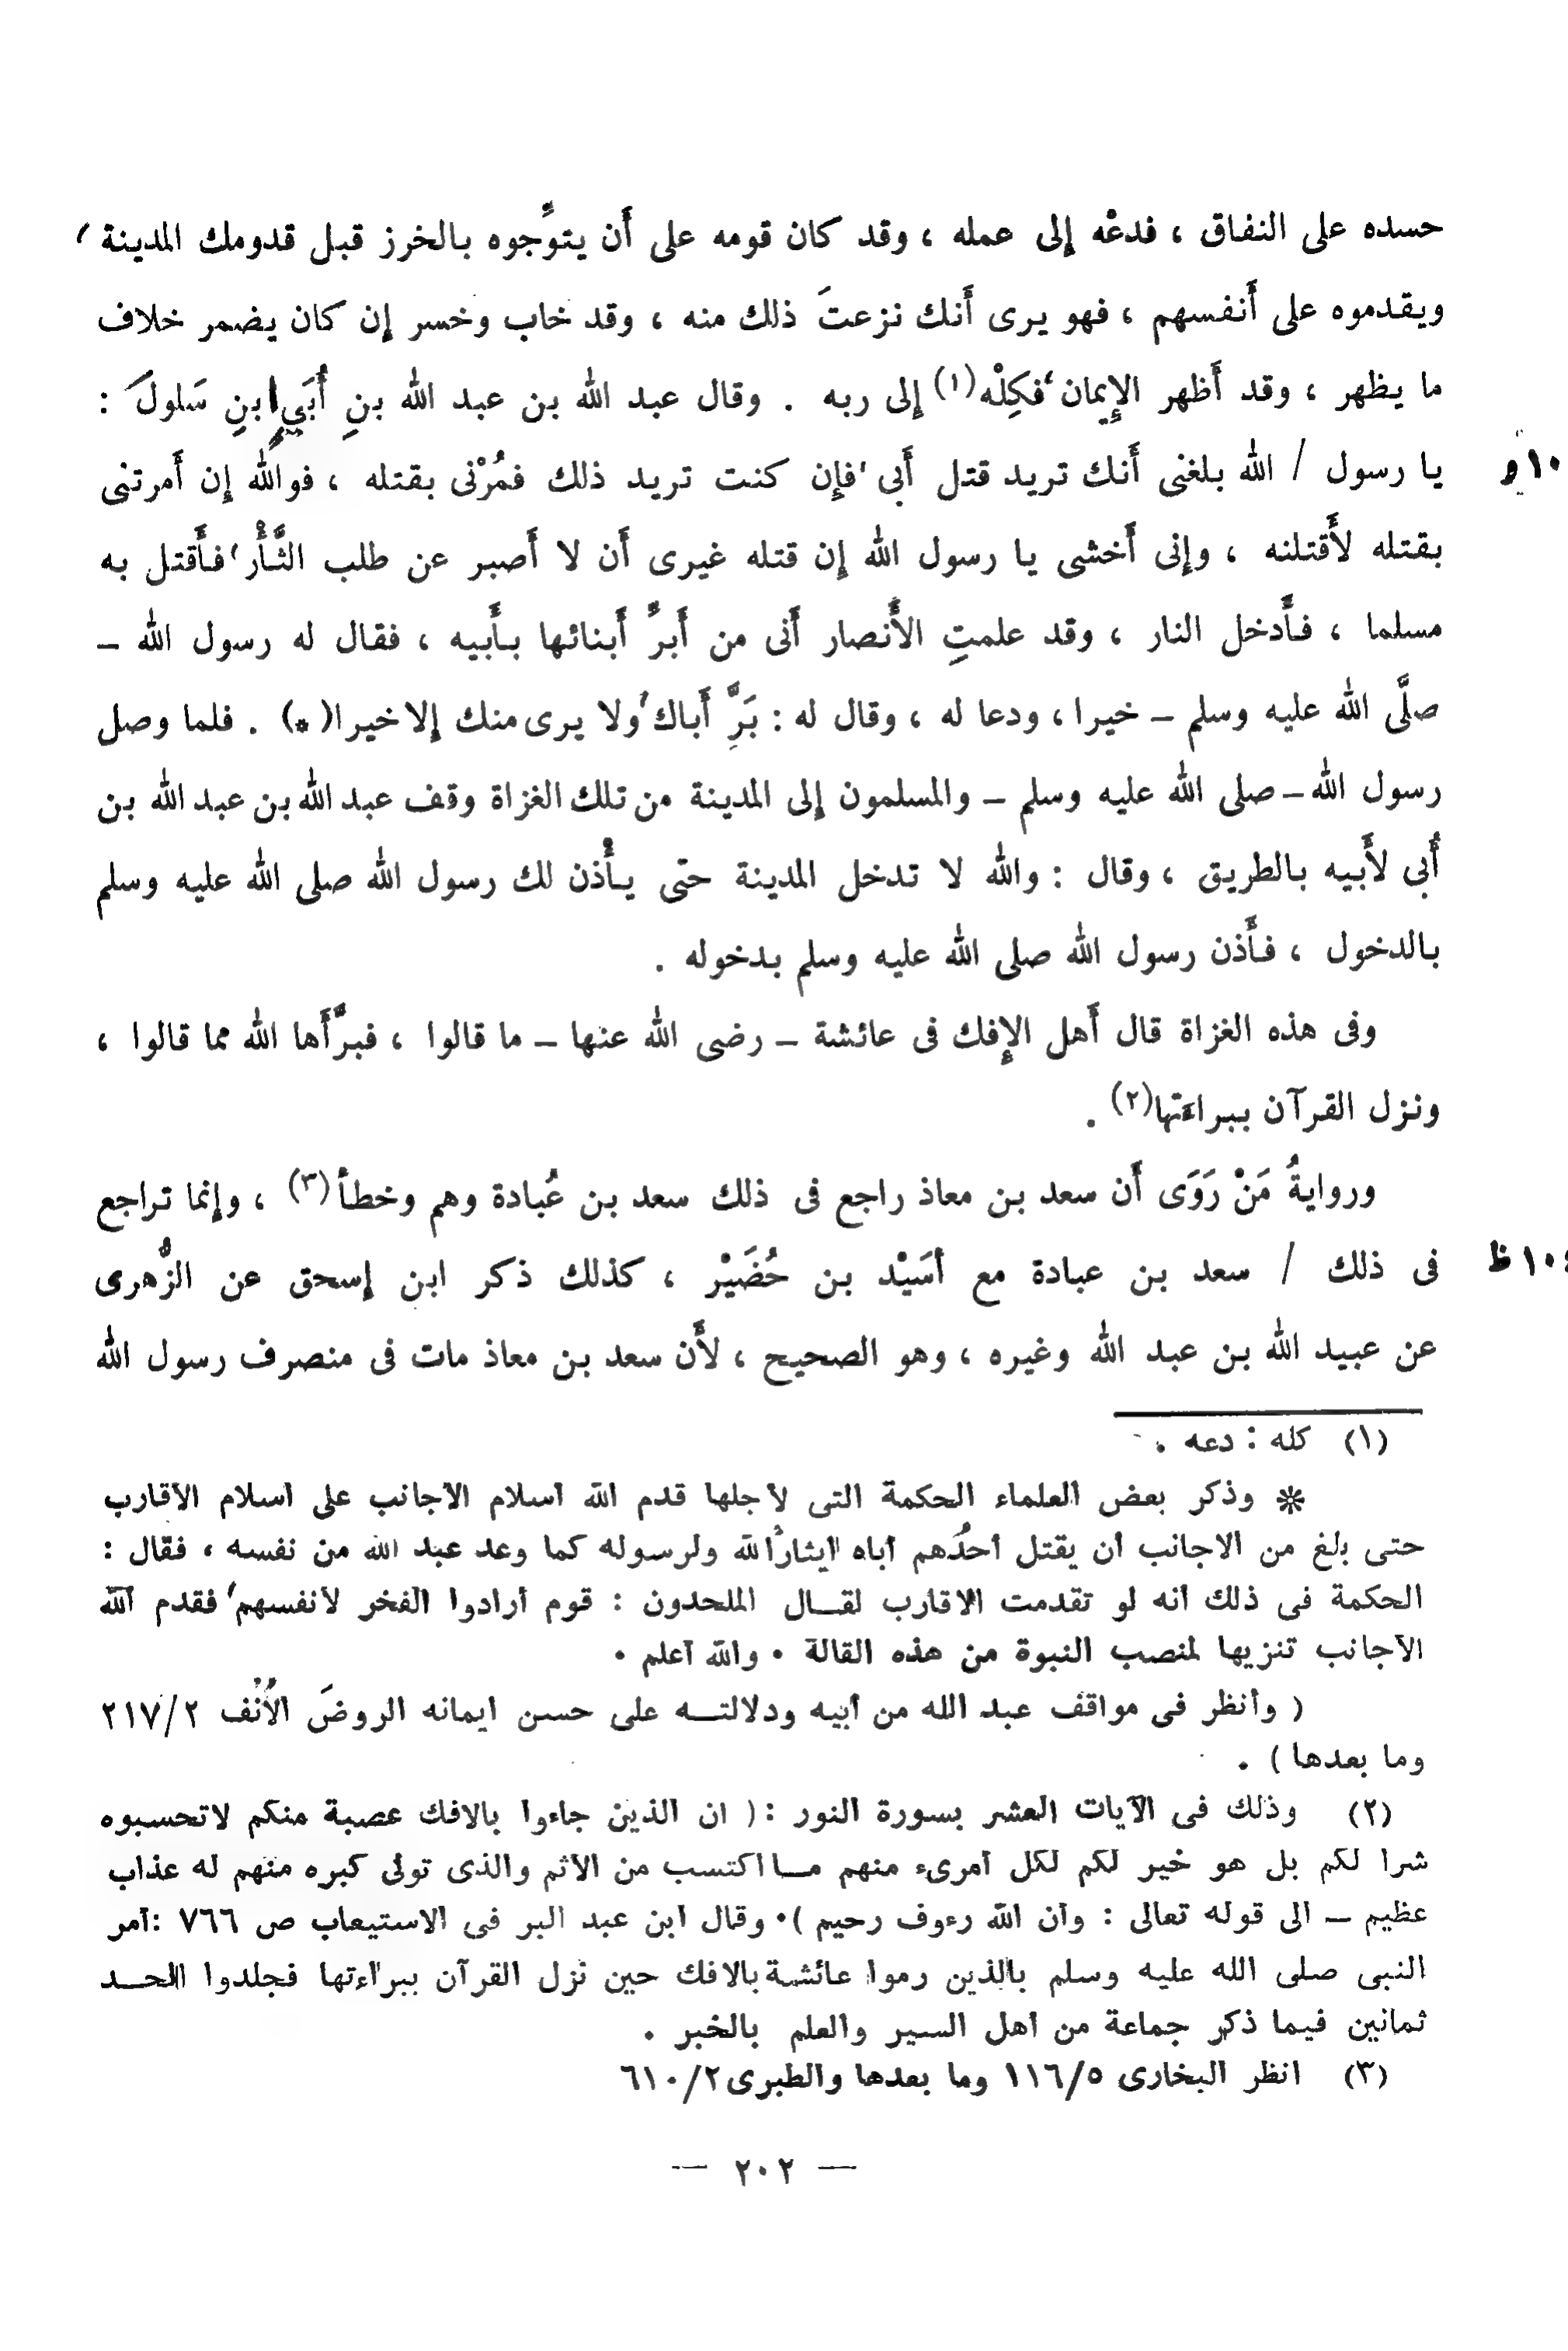 حسده على النفاق ، فدعْه إلى عمله ، وقد كان قومه على أَن يتوِّجوه بالخرز قبل قدومك المدينة ،
ويقدموه على أَنفسهم ، فهو يرى أَنك نزعتَ ذلك منه ، وقد خاب وخسر إن كان يضمر خلاف
ما يظهر ، وقد أَظهر الإِيمان ، فكِلْه(١) إلى ربه . وقال عبد الله بن عبد الله بنِ أُبَيٍّ ابنِ سَلولَ :
١٠ و
يا رسول / الله بلغنى أَنك تريد قتل أَبى ، فإِن كنت تريد ذلك فمُرْنى بقتله ، فوالله إن أَمرتنى
بقتله لأَقتلنه ، وإنى أَخشى يا رسول الله إن قتله غيرى أَن لا أَصبر عن طلب الثَّأْر ، فأَقتل به
مسلما ، فأَدخل النار ، وقد علمتِ الأَنصار أَنى من أَبرِّ أَبنائها بأَبيه ، فقال له رسول الله –
صلَّى الله عليه وسلم – خيرا ، ودعا له ، وقال له : بَرَّ أَباك ، ولا يرى منك إلا خيرا(*) . فلما وصل
رسول الله – صلى الله عليه وسلم – والمسلمون إلى المدينة من تلك الغزاة وقف عبد الله بن عبد الله بن
أُبى لأَبيه بالطريق ، وقال : والله لا تدخل المدينة حتى يأْذن لك رسول الله صلى الله عليه وسلم
بالدخول ، فأَذن رسول الله صلى الله عليه وسلم بدخوله .
وفى هذه الغزاة قال أَهل الإِفك فى عائشة – رضى الله عنها – ما قالوا ، فبرَّأَها الله مما قالوا ،
ونزل القرآن ببراءتها(٢) .
وروايةُ مَنْ رَوَى أَن سعد بن معاذ راجع فى ذلك سعد بن عُبادة وهم وخطأ(٣) ، وإنما تراجع
١٠٤ ظ
فى ذلك / سعد بن عبادة مع أسَيْد بن حُضَيْر ، كذلك ذكر ابن إسحق عن الزُّهرى
عن عبيد الله بن عبد الله وغيره ، وهو الصحيح ، لأَن سعد بن معاذ مات فى منصرف رسول الله
(١) كله : دعه .
* وذكر بعض العلماء الحكمة التى لأجلها قدم الله اسلام الأجانب على اسلام الأقارب
حتى بلغ من الأجانب أن يقتل أحدُهم أباه ايثارًا لله ولرسوله كما وعد عبد الله من نفسه ، فقال :
الحكمة فى ذلك أنه لو تقدمت الأقارب لقـال الملحدون : قوم أرادوا الفخر لأنفسهم ، فقدم الله
الأجانب تنزيها لمنصب النبوة من هذه القالة • والله أعلم •
( وأنظر فى مواقف عبد الله من أبيه ودلالتـه على حسن ايمانه الروضَ الأُنُف ٢١٧/٢
وما بعدها ) .
(٢) وذلك فى الآيات العشر بسورة النور : ( ان الذين جاءوا بالافك عصبة منكم لاتحسبوه
شرا لكم بل هو خير لكم لكل أمرىء منهم مـا اكتسب من الأثم والذى تولى كبره منهم له عذاب
عظيم – الى قوله تعالى : وأن الله رءوف رحيم )• وقال ابن عبد البر فى الاستيعاب ص ٧٦٦ : أمر
النبى صلى الله عليه وسلم بالذين رموا عائشة بالافك حين نزل القرآن ببراءتها فجلدوا الحـد
ثمانين فيما ذكر جماعة من أهل السير والعلم بالخبر .
(٣) انظر البخارى ١١٦/٥ وما بعدها والطبرى ٦١٠/٢
— ٢٠٢ —